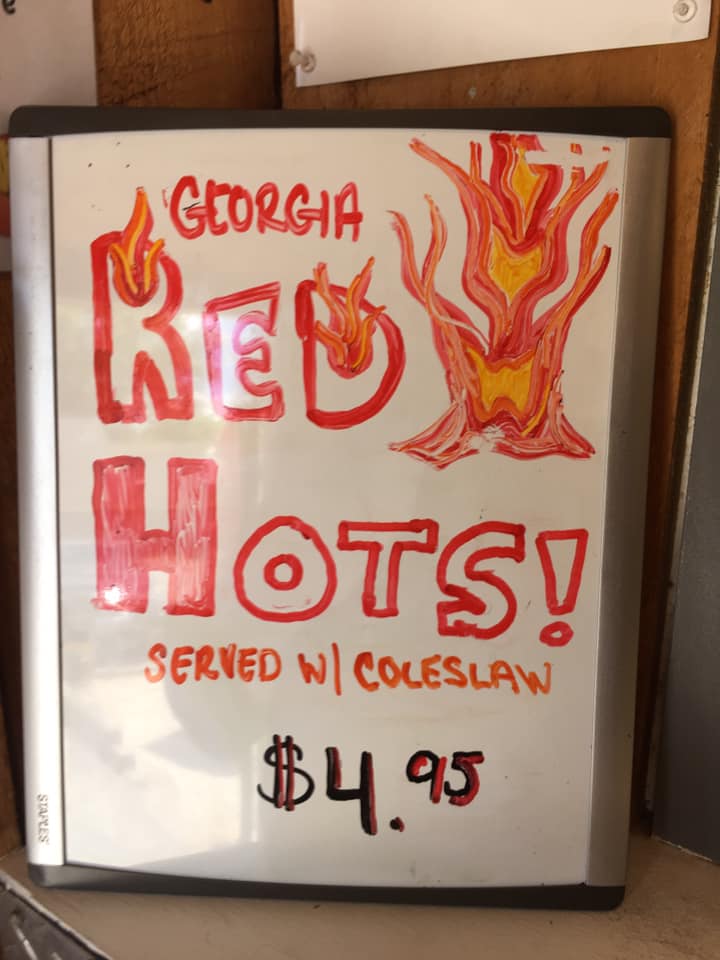 GEORGIA
RED
HOTS!
SERVED W/ COLESLAW
$4.95
STAPLES